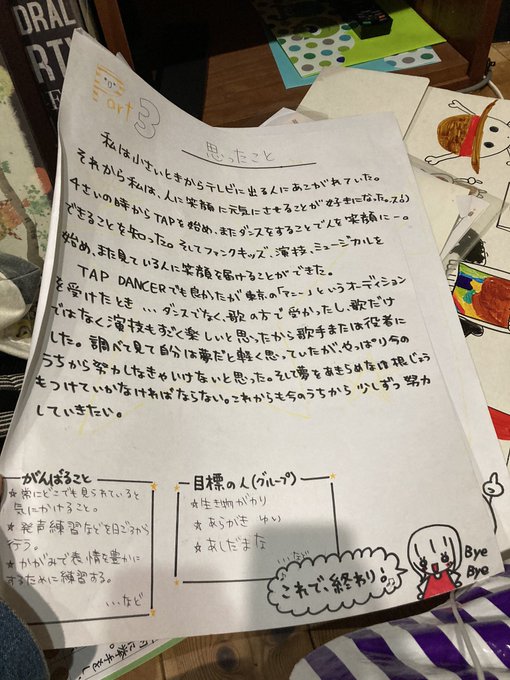 DRAL
Part 3
思ったこと
私は小さいときからテレビに出る人にあこがれていた。
それから私は、人に笑顔に元気にさせることが好きになった。
4さいの時からTAPを始め、またダンスをすることで人を笑顔に
できることを知った。そしてファンクキッズ、演技、ミュージカルを
始め、また見ている人に笑顔を届けることができた。
TAP DANCERでも良かったが東京の「アニー」というオーディション
を受けたとき…ダンスでなく、歌の方で受かったし、歌だけ
ではなく演技もすごく楽しいと思ったから歌手または役者に
した。調べて見て自分は夢だと軽く思っていたが、やっぱり今の
うちから努力しなきゃいけないと思った。そして夢をあきらめない根じょう
もつけていかなければならない。これからも今のうちから少しずつ努力
していきたい。
がんばること
☆常にどこでも見られていると
気にかけること。
☆発声練習などを日ごろから
行う。
☆かがみで表情を豊かに
するために練習する。
…など
目標の人(グループ)
☆生き物がかり
☆あらがき ゆい
☆あしだまな
…など
これで、終わり!
Bye
Bye